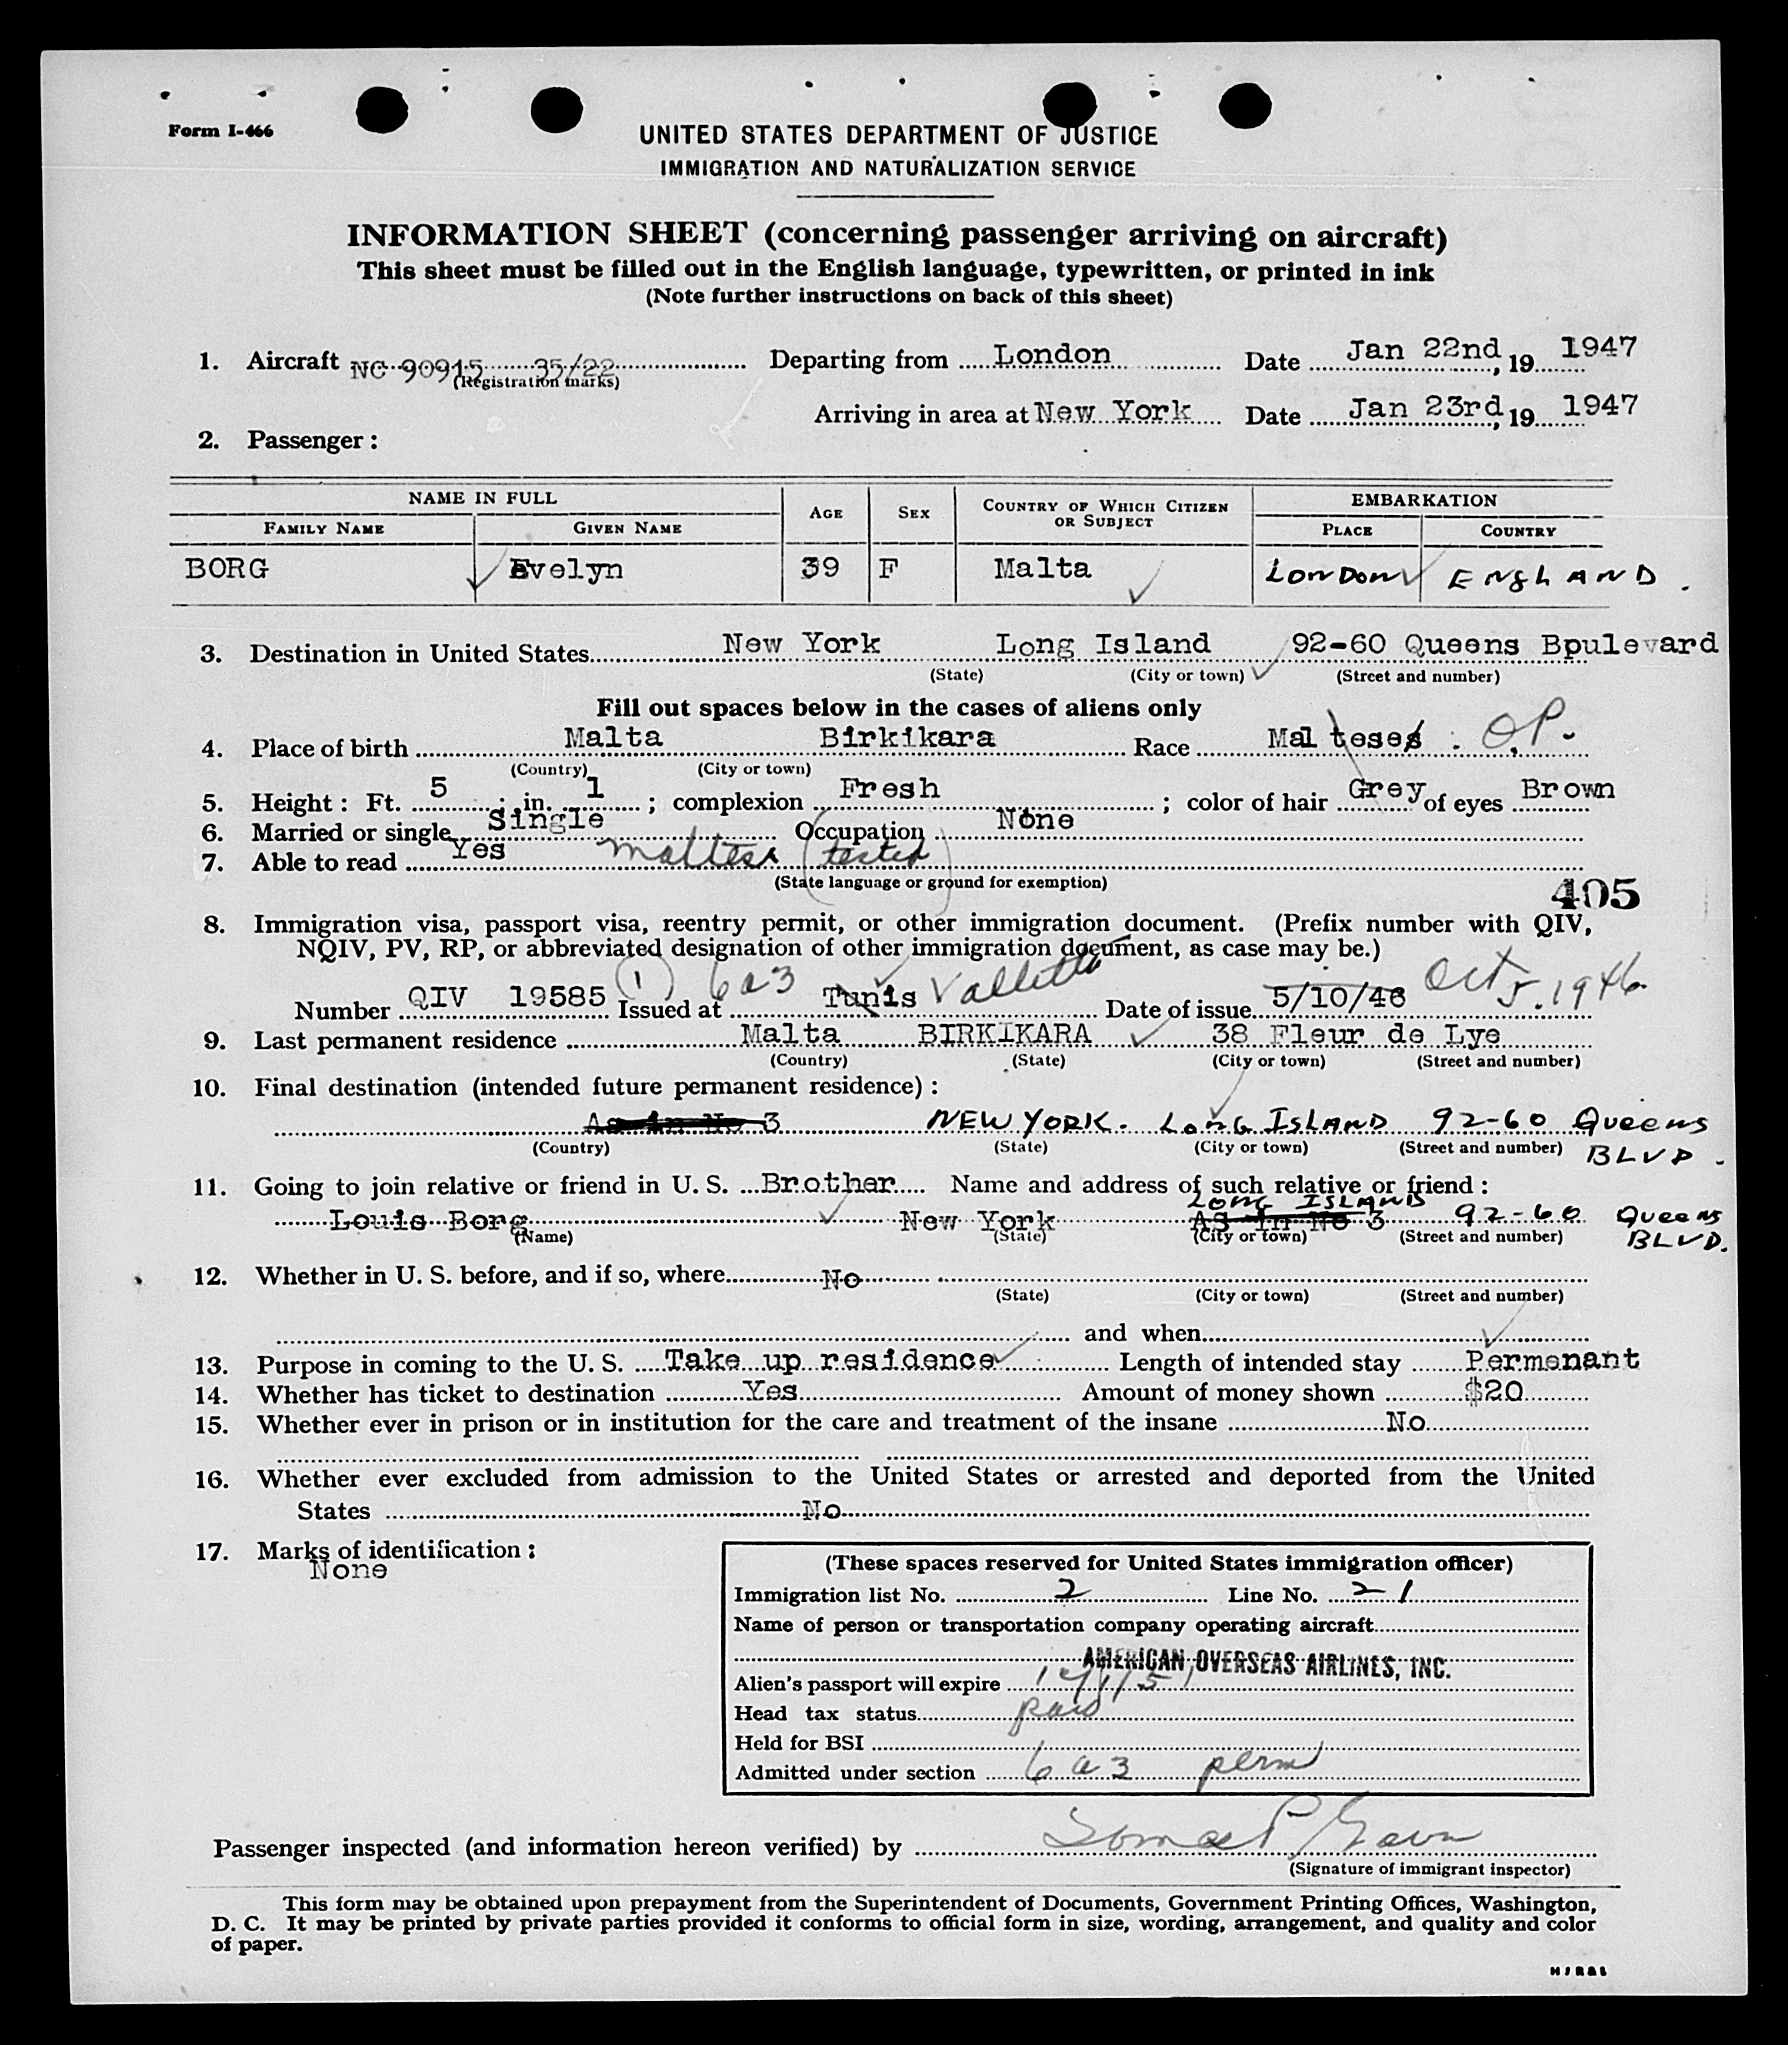 Form I-466
UNITED STATES DEPARTMENT OF JUSTICE
IMMIGRATION AND NATURALIZATION SERVICE
INFORMATION SHEET (concerning passenger arriving on aircraft)
This sheet must be filled out in the English language, typewritten, or printed in ink
(Note further instructions on back of this sheet)
1. Aircraft NC 90915 35/22 Departing from London Date Jan 22nd, 19 1947
(Registration marks)
Arriving in area at New York Date Jan 23rd, 19 1947
2. Passenger:
NAME IN FULL AGE SEX COUNTRY OF WHICH CITIZEN OR SUBJECT EMBARKATION
FAMILY NAME GIVEN NAME PLACE COUNTRY
BORG Evelyn 39 F Malta LONDON ENGLAND.
3. Destination in United States New York Long Island 92-60 Queens Bpulevard
(State) (City or town) (Street and number)
Fill out spaces below in the cases of aliens only
4. Place of birth Malta Birkikara Race Mal teses. O.P.
(Country) (City or town)
5. Height: Ft. 5; in. 1; complexion Fresh; color of hair Grey of eyes Brown
6. Married or single Single Occupation None
7. Able to read Yes Maltese (tested)
(State language or ground for exemption)
405
8. Immigration visa, passport visa, reentry permit, or other immigration document. (Prefix number with QIV,
NQIV, PV, RP, or abbreviated designation of other immigration document, as case may be.)
(1) 6a3
Number QIV 19585 Issued at Tunis Valletta Date of issue 5/10/46 Oct 5. 1946.
9. Last permanent residence Malta BIRKIKARA 38 Fleur de Lye
(Country) (State) (City or town) (Street and number)
10. Final destination (intended future permanent residence):
As in No 3 NEW YORK. LONG ISLAND 92-60 Queens
(Country) (State) (City or town) (Street and number) BLVD.
11. Going to join relative or friend in U. S. Brother Name and address of such relative or friend:
LONG ISLAND
Louis Borg New York As In No 3 92-60 Queens
(Name) (State) (City or town) (Street and number) BLVD.
12. Whether in U. S. before, and if so, where No
(State) (City or town) (Street and number)
and when
13. Purpose in coming to the U. S. Take up residence Length of intended stay Permenant
14. Whether has ticket to destination Yes Amount of money shown $20
15. Whether ever in prison or in institution for the care and treatment of the insane No
16. Whether ever excluded from admission to the United States or arrested and deported from the United
States No
17. Marks of identification:
None
(These spaces reserved for United States immigration officer)
Immigration list No. 2 Line No. 21
Name of person or transportation company operating aircraft
AMERICAN OVERSEAS AIRLINES, INC.
Alien's passport will expire
Head tax status paid
Held for BSI
Admitted under section 6a3 perm
Passenger inspected (and information hereon verified) by
(Signature of immigrant inspector)
This form may be obtained upon prepayment from the Superintendent of Documents, Government Printing Offices, Washington,
D. C. It may be printed by private parties provided it conforms to official form in size, wording, arrangement, and quality and color
of paper.